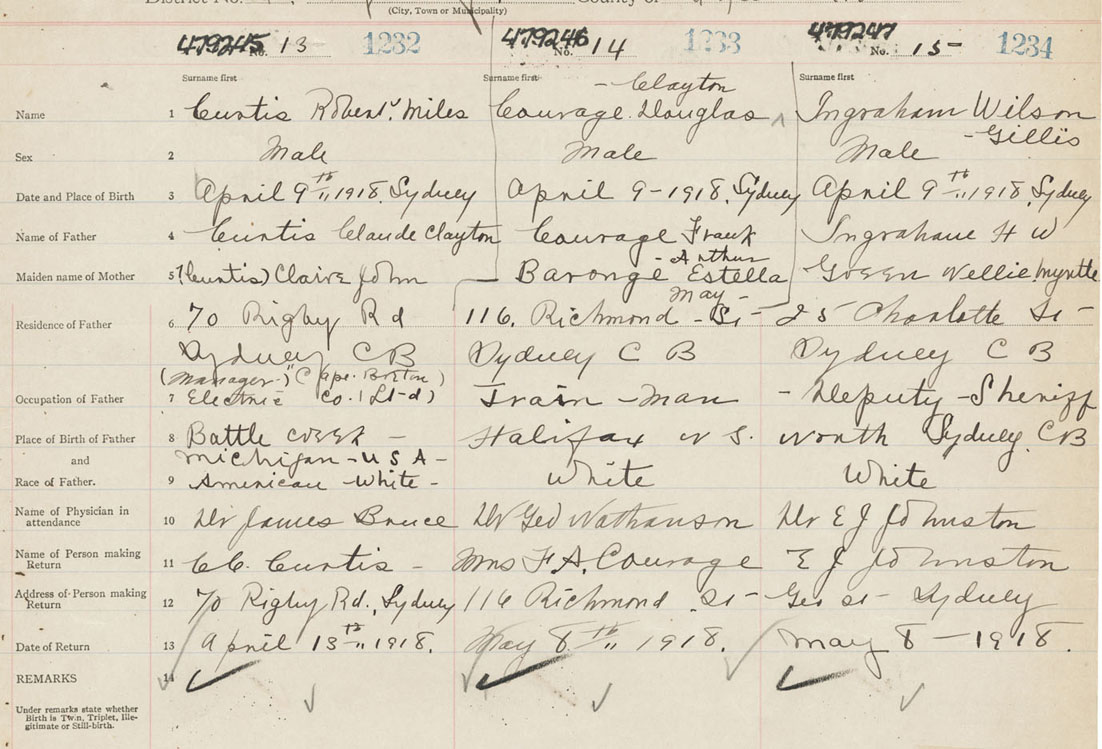 District No. County of
(City, Town or Municipality)
479245 No. 13 1232 479246 No. 14 1233 479247 No. 15 1234
Surname first Surname first Surname first
Clayton
Name 1 Curtis Robert Miles Courage Douglas Ingraham Wilson
Gillis
Sex 2 Male Male Male
Date and Place of Birth 3 April 9th 1918. Sydney April 9-1918, Sydney April 9th 1918, Sydney
Name of Father 4 Curtis Claude Clayton Courage Frank Ingraham H W
Arthur
Maiden name of Mother 5 (Curtis) Claire John Baronge Estella Green Nellie Myrtle
May
Residence of Father 6 70 Rigby Rd 116, Richmond St 25 Charlotte St
Sydney CB Sydney C B Sydney C B
(manager) "(Cape Breton)
Occupation of Father 7 Electric Co. (Lt-d) Train-Man Deputy-Sheriff
Place of Birth of Father 8 Battle creek Halifax N S. North Sydney, CB
and Michigan-USA-
Race of Father. 9 American White- White White
Name of Physician in
attendance 10 Dr James Bruce Dr Geo Nathanson Dr E J Johnston
Name of Person making
Return 11 C C. Curtis Mrs F.A. Courage E J Johnston
Address of Person making
Return 12 70 Rigby Rd., Sydney 116 Richmond St Geo St- Sydney
Date of Return 13 April 13th 1918. May 8th 1918. May 8-1918.
REMARKS 14
Under remarks state whether
Birth is Twin, Triplet, Ille-
gitimate or Still-birth.